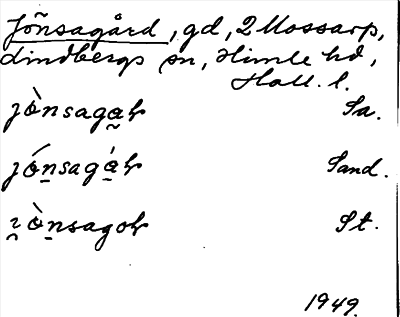 Jönsagård, gd, 2 Mossarp,
Lindbergs sn, Himle hd,
Hall. l.
jònsaga̰r Sa.
jóṉsagá̱r Sand.
ɿ̰òṉsagor St.
1949.